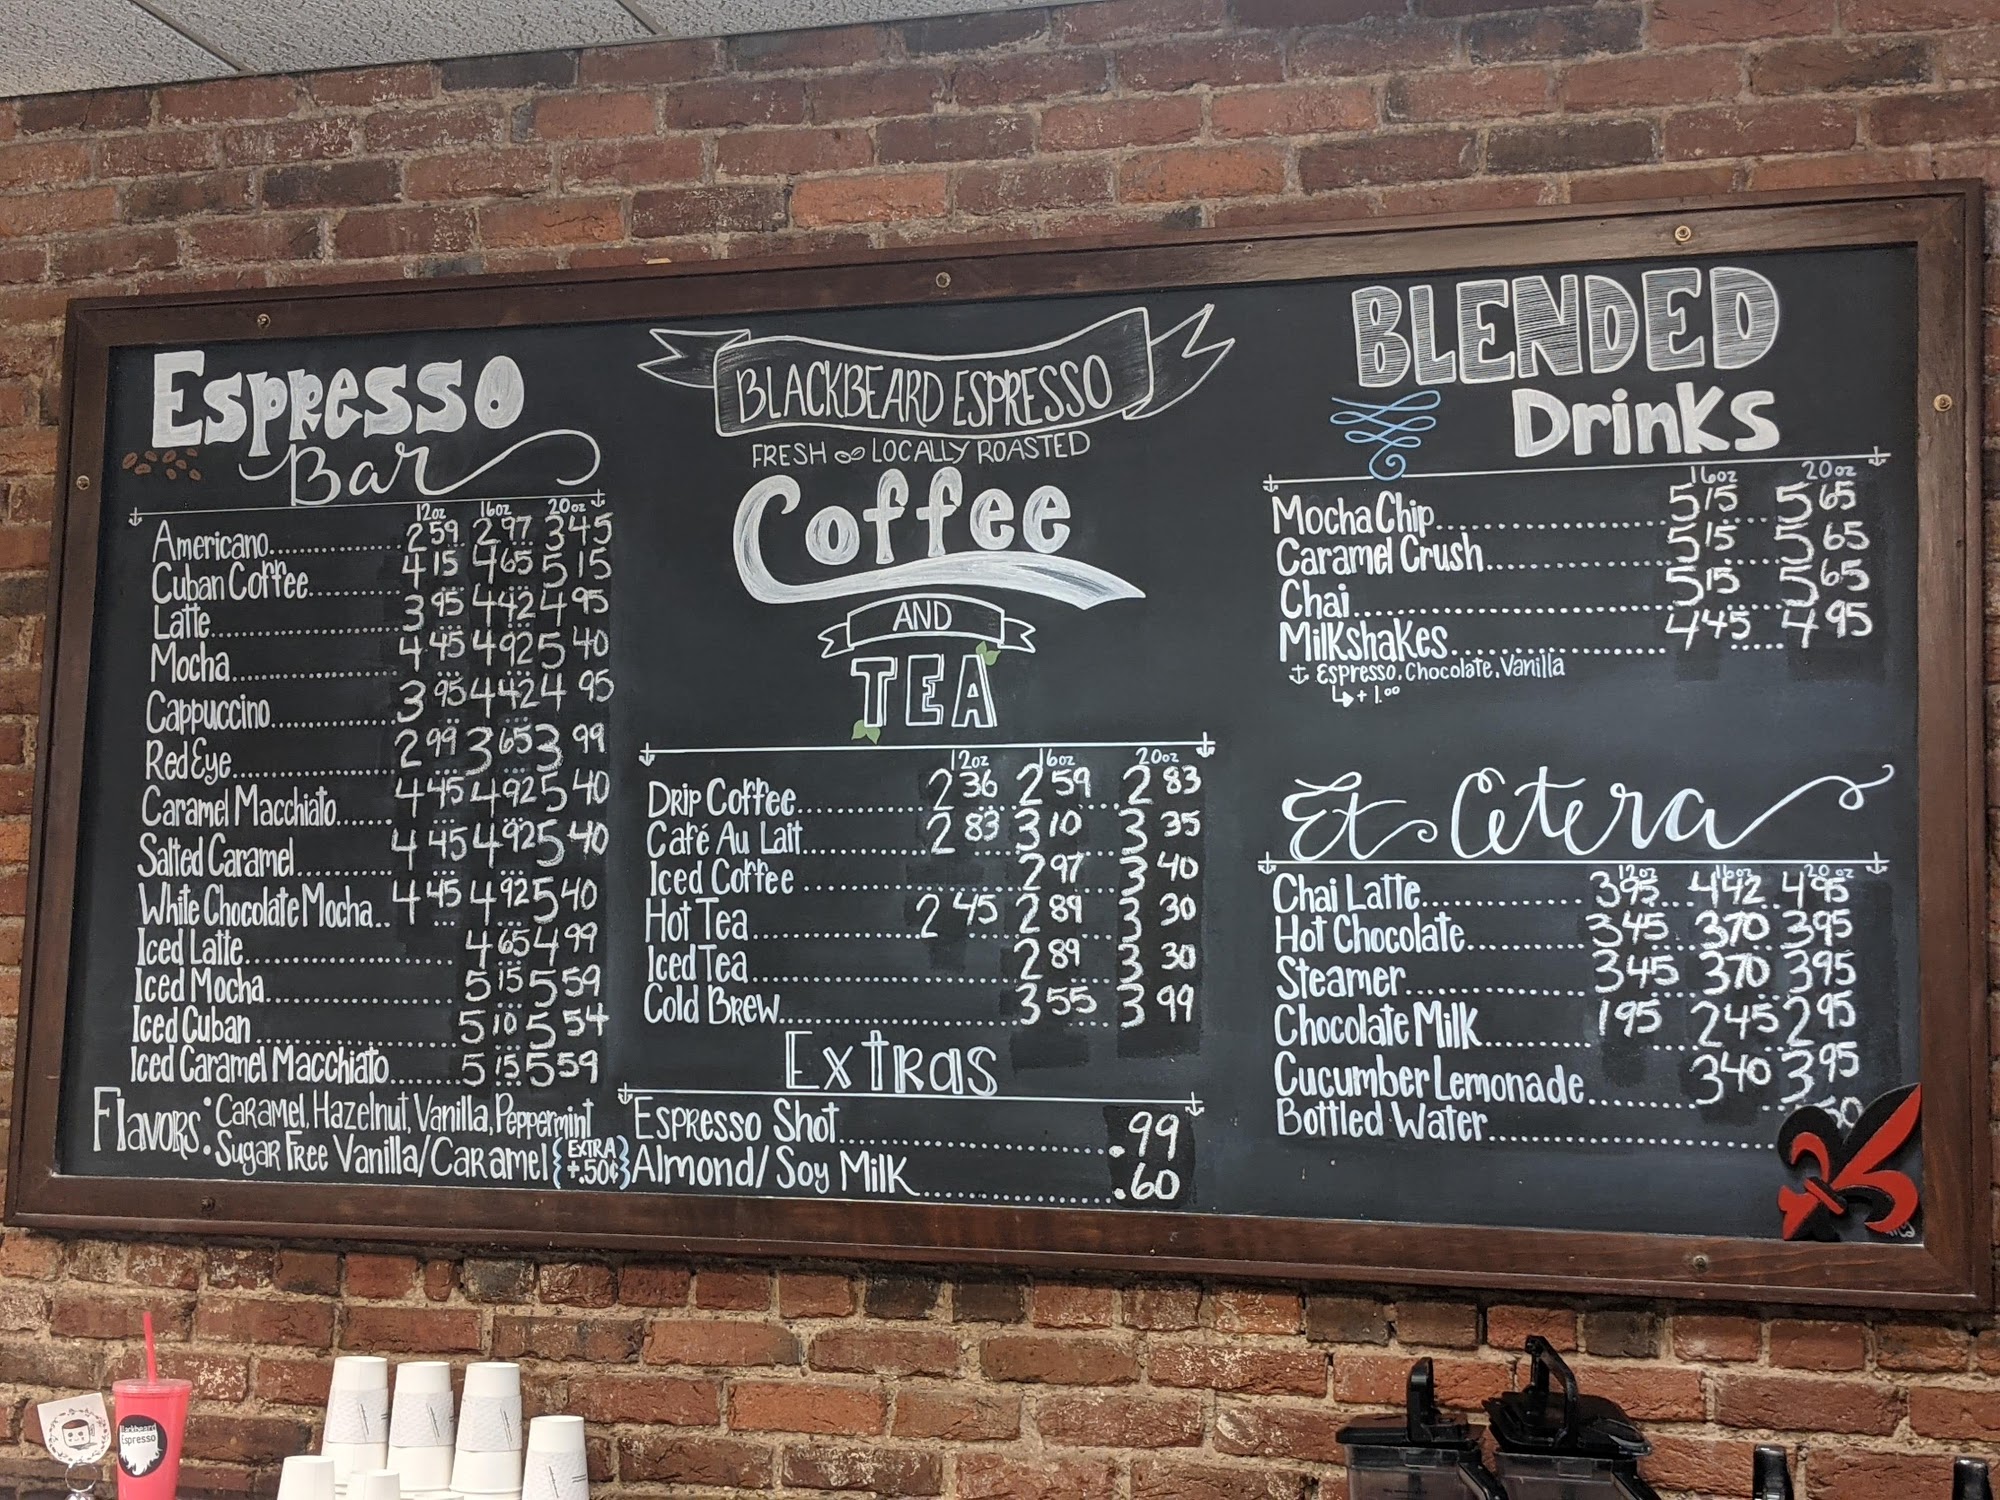 Espresso
Bar
12oz 16oz 20oz
Americano 2 59 2 97 3 45
Cuban Coffee 4 15 4 65 5 15
Latte 3 95 4 42 4 95
Mocha 4 45 4 92 5 40
Cappuccino 3 95 4 42 4 95
Red Eye 2 99 3 65 3 99
Caramel Macchiato 4 45 4 92 5 40
Salted Caramel 4 45 4 92 5 40
White Chocolate Mocha 4 45 4 92 5 40
Iced Latte 4 65 4 99
Iced Mocha 5 15 5 59
Iced Cuban 5 10 5 54
Iced Caramel Macchiato 5 15 5 59
Flavors: Caramel, Hazelnut, Vanilla, Peppermint
Sugar Free Vanilla/Caramel {EXTRA +.50¢}
BLACKBEARD ESPRESSO
FRESH LOCALLY ROASTED
Coffee
AND
TEA
12oz 16oz 20oz
Drip Coffee 2 36 2 59 2 83
Café Au Lait 2 83 3 10 3 35
Iced Coffee 2 97 3 40
Hot Tea 2 45 2 89 3 30
Iced Tea 2 89 3 30
Cold Brew 3 55 3 99
Extras
Espresso Shot .99
Almond/Soy Milk .60
BLENDED
Drinks
16oz 20oz
Mocha Chip 5 15 5 65
Caramel Crush 5 15 5 65
Chai 5 15 5 65
Milkshakes 4 45 4 95
Espresso, Chocolate, Vanilla
+1.00
Et Cetera
12oz 16oz 20oz
Chai Latte 3 95 4 42 4 95
Hot Chocolate 3 45 3 70 3 95
Steamer 3 45 3 70 3 95
Chocolate Milk 1 95 2 45 2 95
Cucumber Lemonade 3 40 3 95
Bottled Water
Blackbeard
Espresso